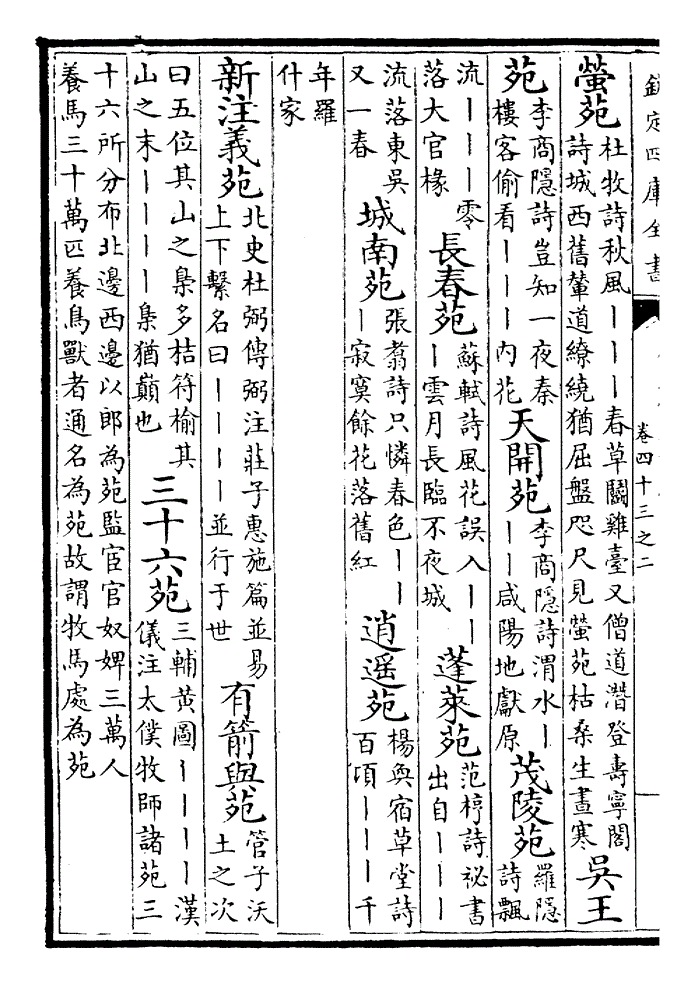 欽定四庫全書
卷四十三之二
螢苑
杜牧詩秋風｜｜｜春草鬭雞臺又僧道潛登壽寧閣
詩城西舊輦道繚繞猶屈盤咫尺見螢苑枯桑生晝寒
吳王
苑
李商隱詩豈知一夜秦
樓客偷看｜｜｜内花
天開苑
李商隱詩渭水｜
｜｜咸陽地獻原
茂陵苑
羅隱
詩飄
流｜｜｜零
落大官椽
長春苑
蘇軾詩風花誤入｜｜
｜雲月長臨不夜城
蓬萊苑
范梈詩祕書
出自｜｜｜
流落東吳
又一春
城南苑
張翥詩只憐春色｜｜
｜寂寞餘花落舊紅
逍遥苑
楊奐宿草堂詩
百頃｜｜｜千
年羅
什家
新注義苑
北史杜弼傳弼注莊子惠施篇並易
上下繫名曰｜｜｜｜並行于世
有箭與苑
管子沃
土之次
曰五位其山之梟多桔符榆其
山之末｜｜｜｜梟猶巔也
三十六苑
三輔黄圖｜｜｜｜漢
儀注太僕牧師諸苑三
十六所分布北邊西邊以郎為苑監宦官奴婢三萬人
養馬三十萬匹養鳥獸者通名為苑故謂牧馬處為苑